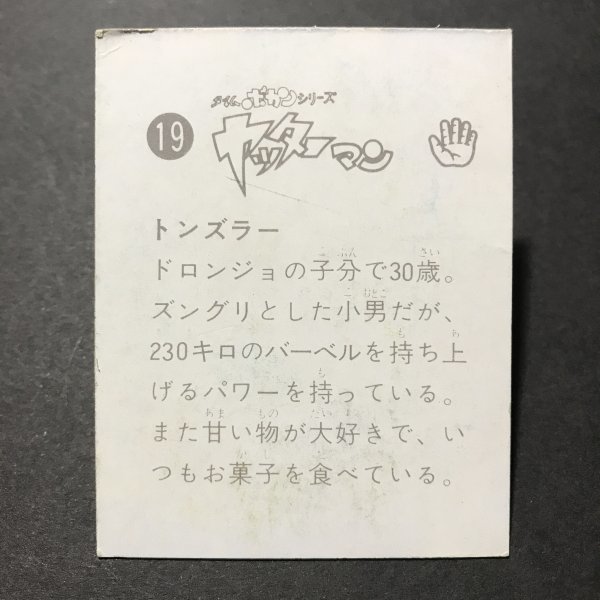 タイムボカンシリーズ
19
ヤッターマン
トンズラー
ドロンジョの子分で30歳。
ズングリとした小男だが、
230キロのバーベルを持ち上
げるパワーを持っている。
また甘い物が大好きで、い
つもお菓子を食べている。